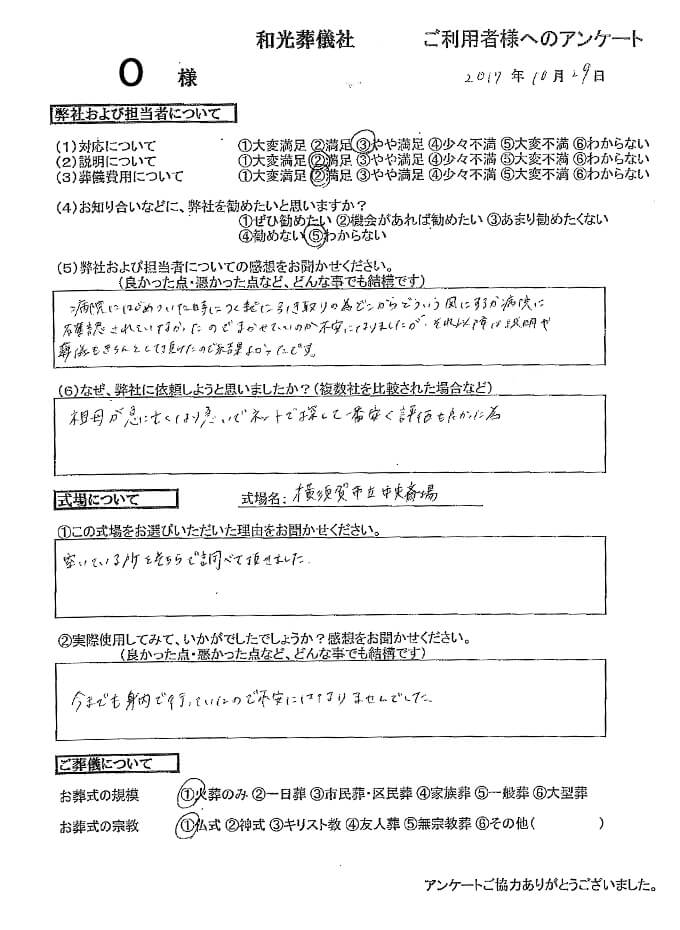 和光葬儀社 ご利用者様へのアンケート
O 様 2017年10月29日
弊社および担当者について
(1)対応について ①大変満足 ②満足 ③やや満足 ④少々不満 ⑤大変不満 ⑥わからない
(2)説明について ①大変満足 ②満足 ③やや満足 ④少々不満 ⑤大変不満 ⑥わからない
(3)葬儀費用について ①大変満足 ②満足 ③やや満足 ④少々不満 ⑤大変不満 ⑥わからない
(4)お知り合いなどに、弊社を勧めたいと思いますか?
①ぜひ勧めたい ②機会があれば勧めたい ③あまり勧めたくない
④勧めない ⑤わからない
(5)弊社および担当者についての感想をお聞かせください。
(良かった点・悪かった点など、どんな事でも結構です)
病院にはじめついた時に引き取りの為どこからどういう風にするか病院に
確認されていなかったのでまかせていいのか不安になりましたが、それ以降は説明や
葬儀もきちんとして頂けたので結果よかったです。
(6)なぜ、弊社に依頼しようと思いましたか?(複数社を比較された場合など)
祖母が急に亡くなり急いでネットで探して一番安く評価も良かった為
式場について 式場名: 横須賀市立中央斎場
①この式場をお選びいただいた理由をお聞かせください。
空いている所をそちらで調べて頂きました。
②実際使用してみて、いかがでしたでしょうか?感想をお聞かせください。
(良かった点・悪かった点など、どんな事でも結構です)
今までも身内で行っていたので不安にはなりませんでした。
ご葬儀について
お葬式の規模 ①火葬のみ ②一日葬 ③市民葬・区民葬 ④家族葬 ⑤一般葬 ⑥大型葬
お葬式の宗教 ①仏式 ②神式 ③キリスト教 ④友人葬 ⑤無宗教葬 ⑥その他( )
アンケートご協力ありがとうございました。